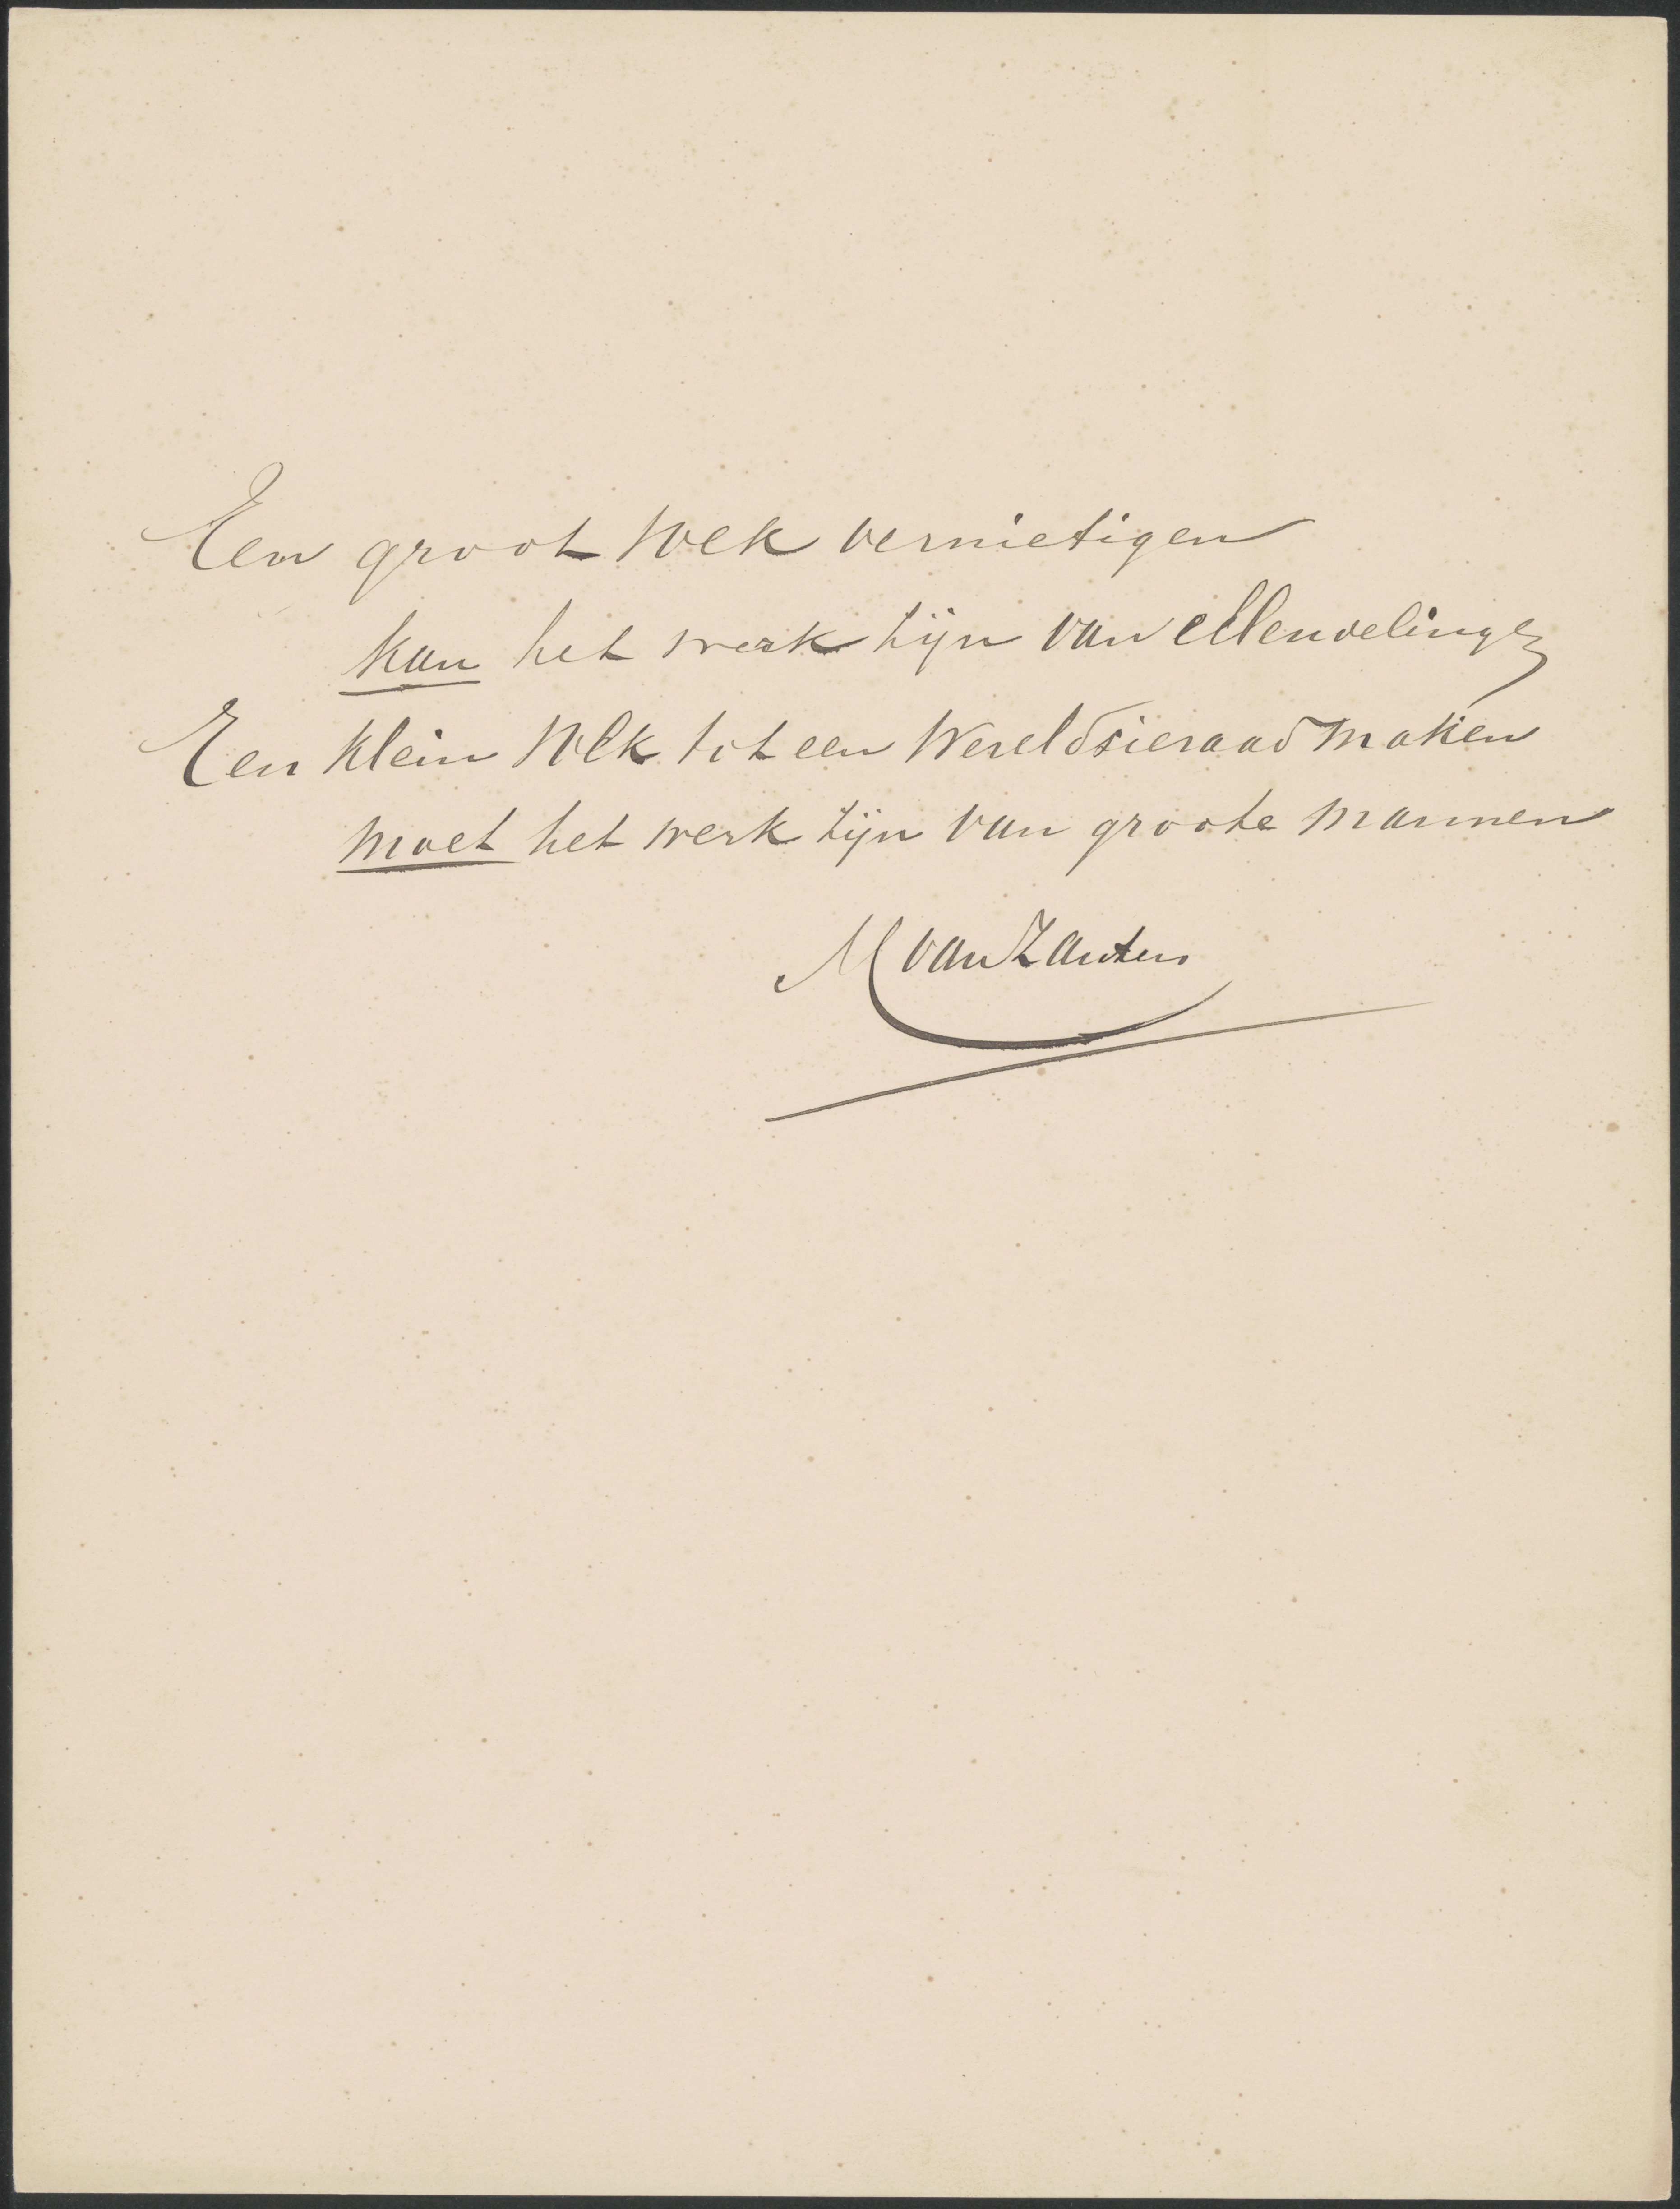 Een groot Volk vernietigen
kan het werk zijn van ellendelingen
Een klein Volk tot een Wereldsieraad maken
moet het werk zijn van groote mannen
M van Zanten